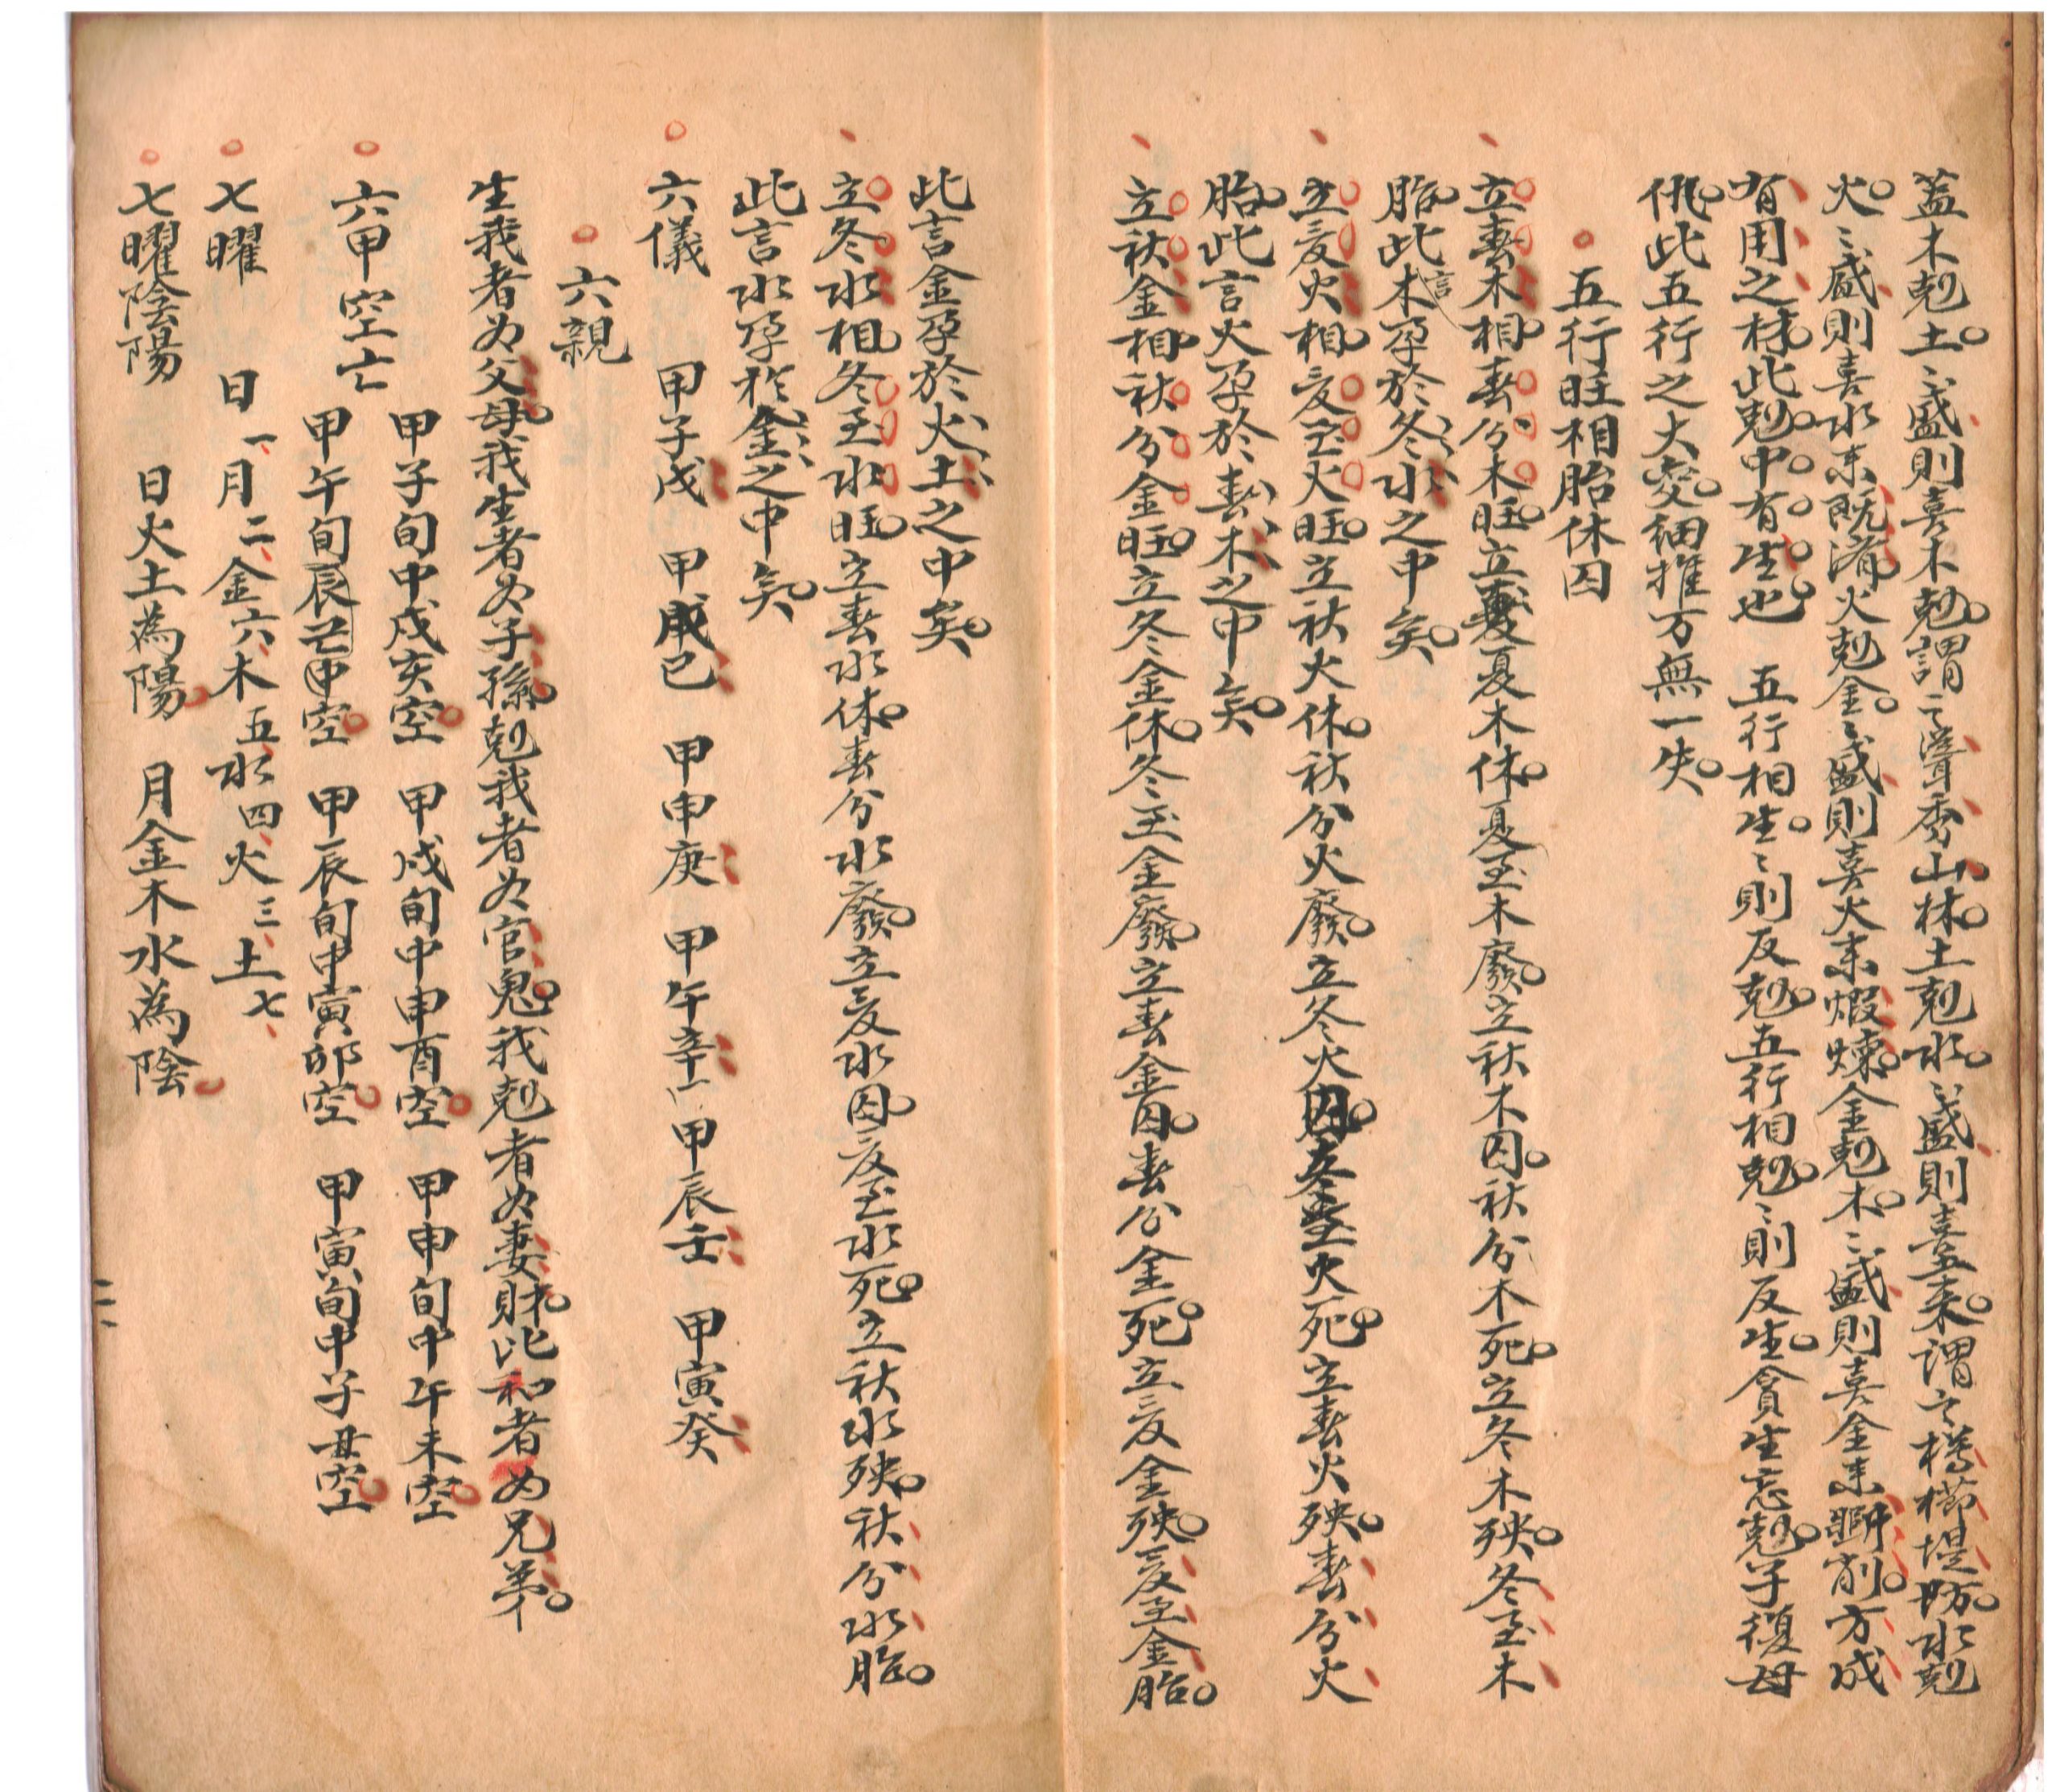 蓋木剋土。〻盛則喜木剋。謂之聳秀山林。土剋水。〻盛則喜土来。謂之樽櫛堤防。水剋
火。〻盛則喜水来既濟火剋金。〻盛則喜火来煅煉。金剋木。〻盛則喜金来斷削。方成
有用之材。此剋。中。有。生也　五行相生。〻則反剋。五行相剋。〻則反生。貪生忘剋。子復母
仇。此五行之大変。細推万無一失。
五行旺相胎休囚
立春木相。春分木旺。立夏木休。夏至木廢。立秋木囚。秋分木死。立冬木殃。冬至木
胎。此言木孕於冬水之中矣。
立夏火相。夏至火旺。立秋火休。秋分火廢。立冬火囚。冬至火死。立春火殃。春分火
胎。此言火孕於春木之中矣。
立秋金相。秋分金旺。立冬金休。冬至金廢。立春金囚。春分金死。立夏金殃。夏至金胎。
此言金孕於火土之中矣。
立冬水相。冬至水旺。立春水休。春分水廢。立夏水囚。夏至水死。立秋水殃。秋分水胎。
此言水孕於金之中矣。
六儀　甲子戊　甲戌己　甲申庚　甲午辛　甲辰壬　甲寅癸
六親
生我者为父母。我生者为子孫。剋我者为官鬼。我剋者为妻財。比和者为兄弟。
六甲空亡
甲子旬中戌亥空　甲戌旬中申酉空　甲申旬中午未空
甲午旬辰巳中空　甲辰旬中寅卯空　甲寅旬中子丑空
七曜　日一月二金六木五水四火三土七
七曜陰陽　日火土為陽　月金木水為陰
二